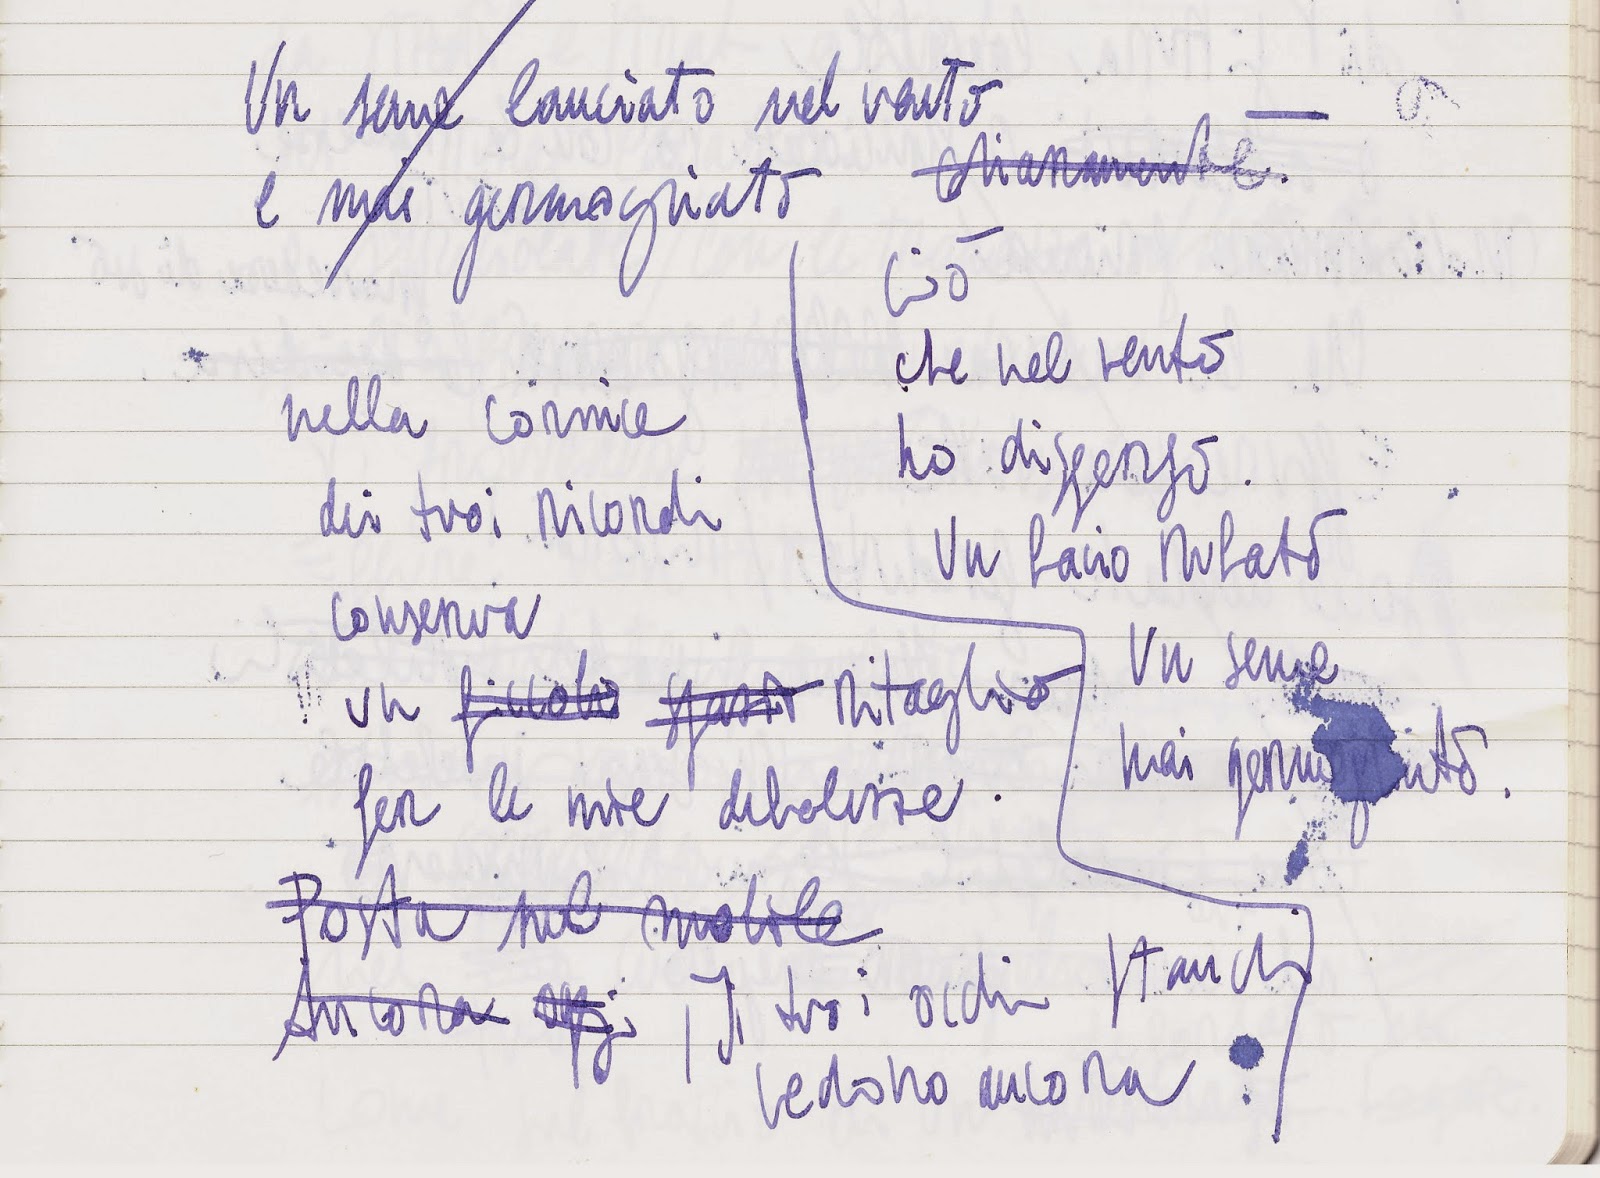 Un seme lanciato nel vento
e mai germogliato
nella cornice
dei tuoi ricordi
conserva
un piccolo spazio ritaglio
per le mie debolezze.
Posta nel mobile
Ancora oggi, I tuoi occhi stanchi
vedono ancora
Ciò
che nel vento
ho disperso.
Un bacio rubato
Un seme
mai germogliato.